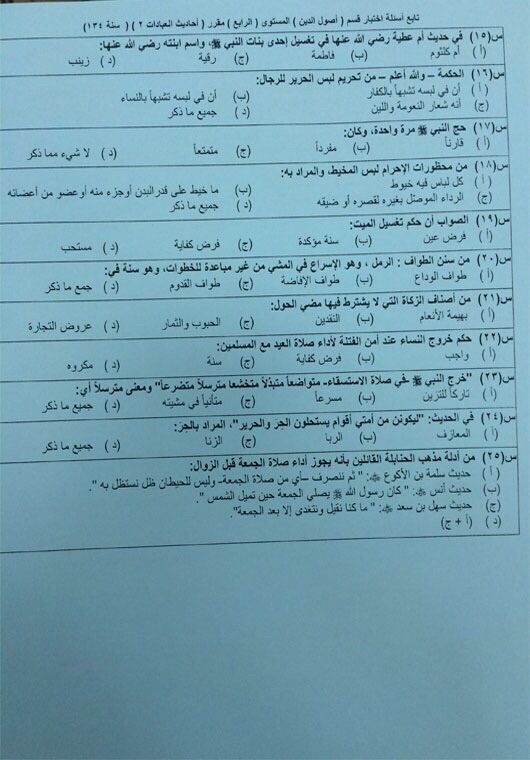 تابع أسئلة اختبار قسم ( أصول الدين ) المستوى ( الرابع ) مقرر ( أحاديث العبادات ٢ ) ( سنة ١٣٤
س(١٥) في حديث أم عطية رضي الله عنها في تغسيل إحدى بنات النبي ﷺ، واسم ابنته رضي الله عنها:
(أ) أم كلثوم (ب) فاطمة (ج) رقية (د) زينب
س(١٦) الحكمة – والله أعلم – من تحريم لبس الحرير للرجال:
(أ) أن في لبسه تشبهاً بالكفار (ب) أن في لبسه تشبهاً بالنساء
(ج) أنه شعار النعومة واللين (د) جميع ما ذكر
س(١٧) حج النبي ﷺ مرة واحدة، وكان:
(أ) قارناً (ب) مفرداً (ج) متمتعاً (د) لا شيء مما ذكر
س(١٨) من محظورات الإحرام لبس المخيط، والمراد به:
(أ) كل لباس فيه خيوط (ب) ما خيط على قدر البدن أوجزء منه أوعضو من أعضائه
(ج) الرداء الموصَل بغيره لقصره أو ضيقه (د) جميع ما ذكر
س(١٩) الصواب أن حكم تغسيل الميت:
(أ) فرض عين (ب) سنة مؤكدة (ج) فرض كفاية (د) مستحب
س(٢٠) من سنن الطواف : الرمل ، وهو الإسراع في المشي من غير مباعدة للخطوات، وهو سنة في:
(أ) طواف الوداع (ب) طواف الإفاضة (ج) طواف القدوم (د) جمع ما ذكر
س(٢١) من أصناف الزكاة التي لا يشترط فيها مضي الحول:
(أ) بهيمة الأنعام (ب) النقدين (ج) الحبوب والثمار (د) عروض التجارة
س(٢٢) حكم خروج النساء عند أمن الفتنة لأداء صلاة العيد مع المسلمين:
(أ) واجب (ب) فرض كفاية (ج) سنة (د) مكروه
س(٢٣) "خرج النبي ﷺ -في صلاة الاستسقاء- متواضعاً متبذلاً متخشعا مترسلاً متضرعاً" ومعنى مترسلاً أي:
(أ) تاركاً للتزين (ب) مسرعاً (ج) متأنياً في مشيته (د) جميع ما ذكر
س(٢٤) في الحديث: "ليكونن من أمتي أقوام يستحلون الحِرَ والحرير"، المراد بالحِرَ:
(أ) المعازف (ب) الربا (ج) الزنا (د) جميع ما ذكر
س(٢٥) من أدلة مذهب الحنابلة القائلين بأنه يجوز أداء صلاة الجمعة قبل الزوال:
(أ) حديث سلمة بن الأكوع ﷺ: " ثم ننصرف –أي من صلاة الجمعة- وليس للحيطان ظل نستظل به ".
(ب) حديث أنس ﷺ: " كان رسول الله ﷺ يصلي الجمعة حين تميل الشمس ".
(ج) حديث سهل بن سعد ﷺ: " ما كنا نقيل ونتغدى إلا بعد الجمعة".
(د) (أ + ج)